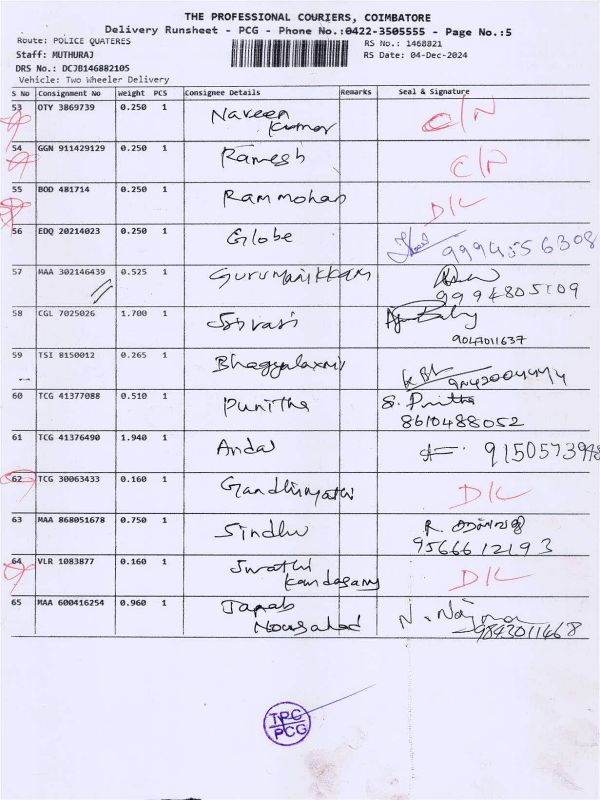 THE PROFESSIONAL COURIERS, COIMBATORE
Delivery Runsheet - PCG - Phone No.:0422-3505555 - Page No.:5
Route: POLICE QUATERES RS No.: 1468821
Staff: MUTHURAJ RS Date: 04-Dec-2024
DRS No.: DCJB146882105
Vehicle: Two Wheeler Delivery
S No Consignment No Weight PCS Consignee Details Remarks Seal & Signature
53 OTY 3869739 0.250 1 Naveen Kumar C/N
54 GGN 911429129 0.250 1 Ramesh
55 BOD 481714 0.250 1 Rammohan D/L
56 EDQ 20214023 0.250 1 Globe 9994556308
57 MAA 302146439 0.525 1 Gurumanikkam 9994805109
58 CGL 7025026 1.700 1 9047011637
59 TSI 8150012 0.265 1 Bhagyalaxmi
60 TCG 41377088 0.510 1 Punitha S. Punitha 8610488052
61 TCG 41376490 1.940 1 Andal
62 TCG 30063433 0.160 1 Gandhimathi D/L
63 MAA 868051678 0.750 1 Sindhu 9566612193
64 VLR 1083877 0.160 1 Swathi Kandasamy D/L
65 MAA 600416254 0.960 1 Janab Nowshad N. Najma 9843011468
TPC
PCG